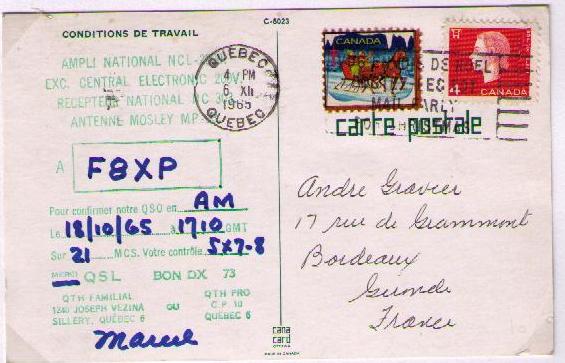 C-6023
CONDITIONS DE TRAVAIL
AMPLI NATIONAL NCL-
EXC. CENTRAL ELECTRONIC 200V.
RECEPTEUR NATIONAL NC 30
ANTENNE MOSLEY M.P.
A F8XP
Pour confirmer notre QSO en AM
Le 18/10/65 à 1710 GMT
Sur 21 MCS. Votre contrôle 5x7-8
MERCI QSL BON DX 73
QTH FAMILIAL
1240 JOSEPH VEZINA
SILLERY, QUÉBEC 6
OU
QTH PRO
C.P. 10
QUÉBEC 6
Marcel
QUÉBEC
4 PM
6 XII
1965
QUEBEC
CANADA
4 CANADA
MAIL EARLY
carte postale
Andre Gravier
17 rue de Grammont
Bordeaux
Gironde
France
cana
card
OTTAWA
MADE IN CANADA